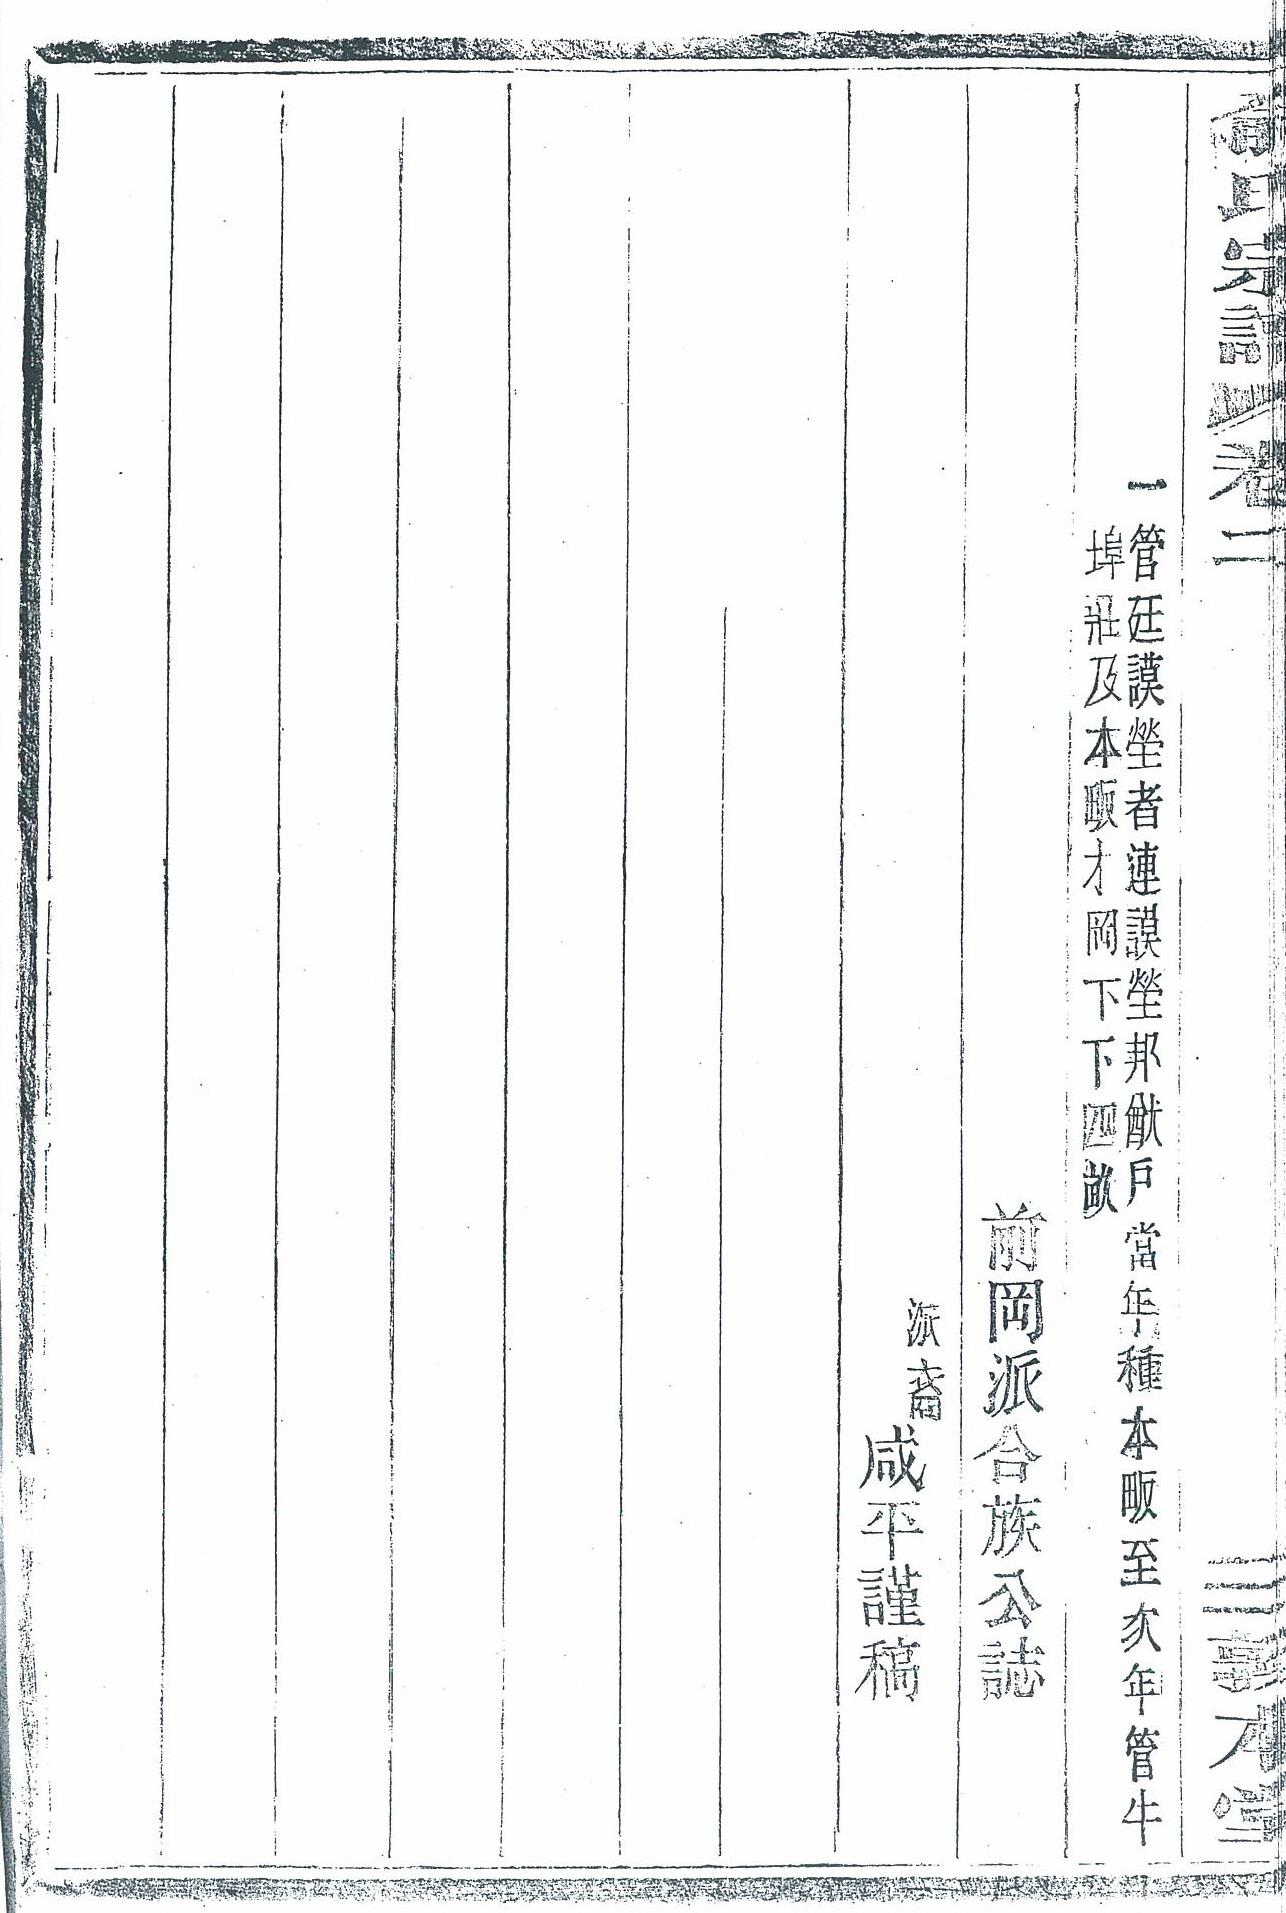 氏宗譜 卷二 本堂
一管廷謨塋者連謨塋邦猷戶當年種本畈至次年管牛
埠莊及本畈才岡下下四畝
前岡派合族公誌
派裔咸平謹稿